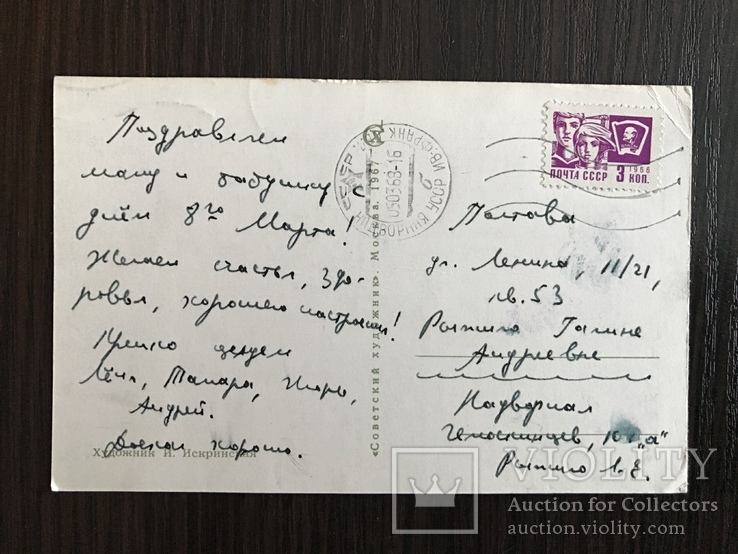 Поздравляем
маму и бабушку с
днём 8го Марта!
Желаем счастья, здо-
ровья, хорошего настроения!
Крепко целуем
Лёня, Тамара, Игорь,
Андрей.
Доехали хорошо.
Художник И. Искринская
«Советский художник». Москва. 1967
НАДВОРНАЯ УССР ИВ-ФРАНК
050368-16
б
ПОЧТА СССР
1966
3 КОП.
Полтава
ул. Ленина, 11/21,
кв. 53
Галине
Андреевне
Надворная
10 "а"
VIOLITY
Auction for Collectors
auction.violity.com